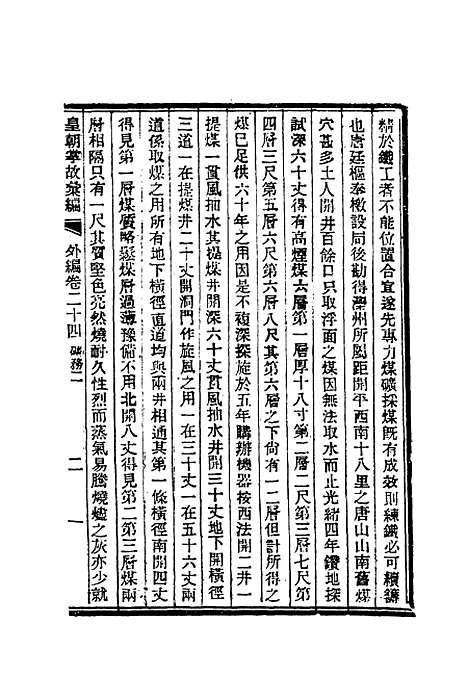 精於鐵工者不能位置合宜遂先專力煤礦採煤既有成效則練鐵必可續籌
也唐廷樞奉檄設局後勘得灤州所屬距開平西南十八里之唐山山南舊煤
穴甚多土人開井百餘口只取浮面之煤因無法取水而止光緒四年鑽地探
試深六十丈得有高煙煤六層第一層厚十八寸第二層二尺第三層七尺第
四層三尺第五層六尺第六層八尺其第六層之下尙有一二層但計所得之
煤已足供六十年之用因是不複深探旋於五年購辦機器按西法開二井一
提煤一貫風抽水其提煤井開深六十丈貫風抽水井開三十丈地下開橫徑
三道一在提煤井二十丈開洞門作旋風之用一在三十丈一在五十六丈兩
道係取煤之用所有地下橫徑直道均與兩井相通其第一條橫徑南開四丈
得見第一層煤質略鬆煤層過薄豫備不用北開八丈得見第二第三層煤兩
層相隔只有一尺其質堅色亮然燒耐久性烈而蒸氣易騰燒爐之灰亦少就
皇朝掌故彙編 外編卷二十四 礦務二 二